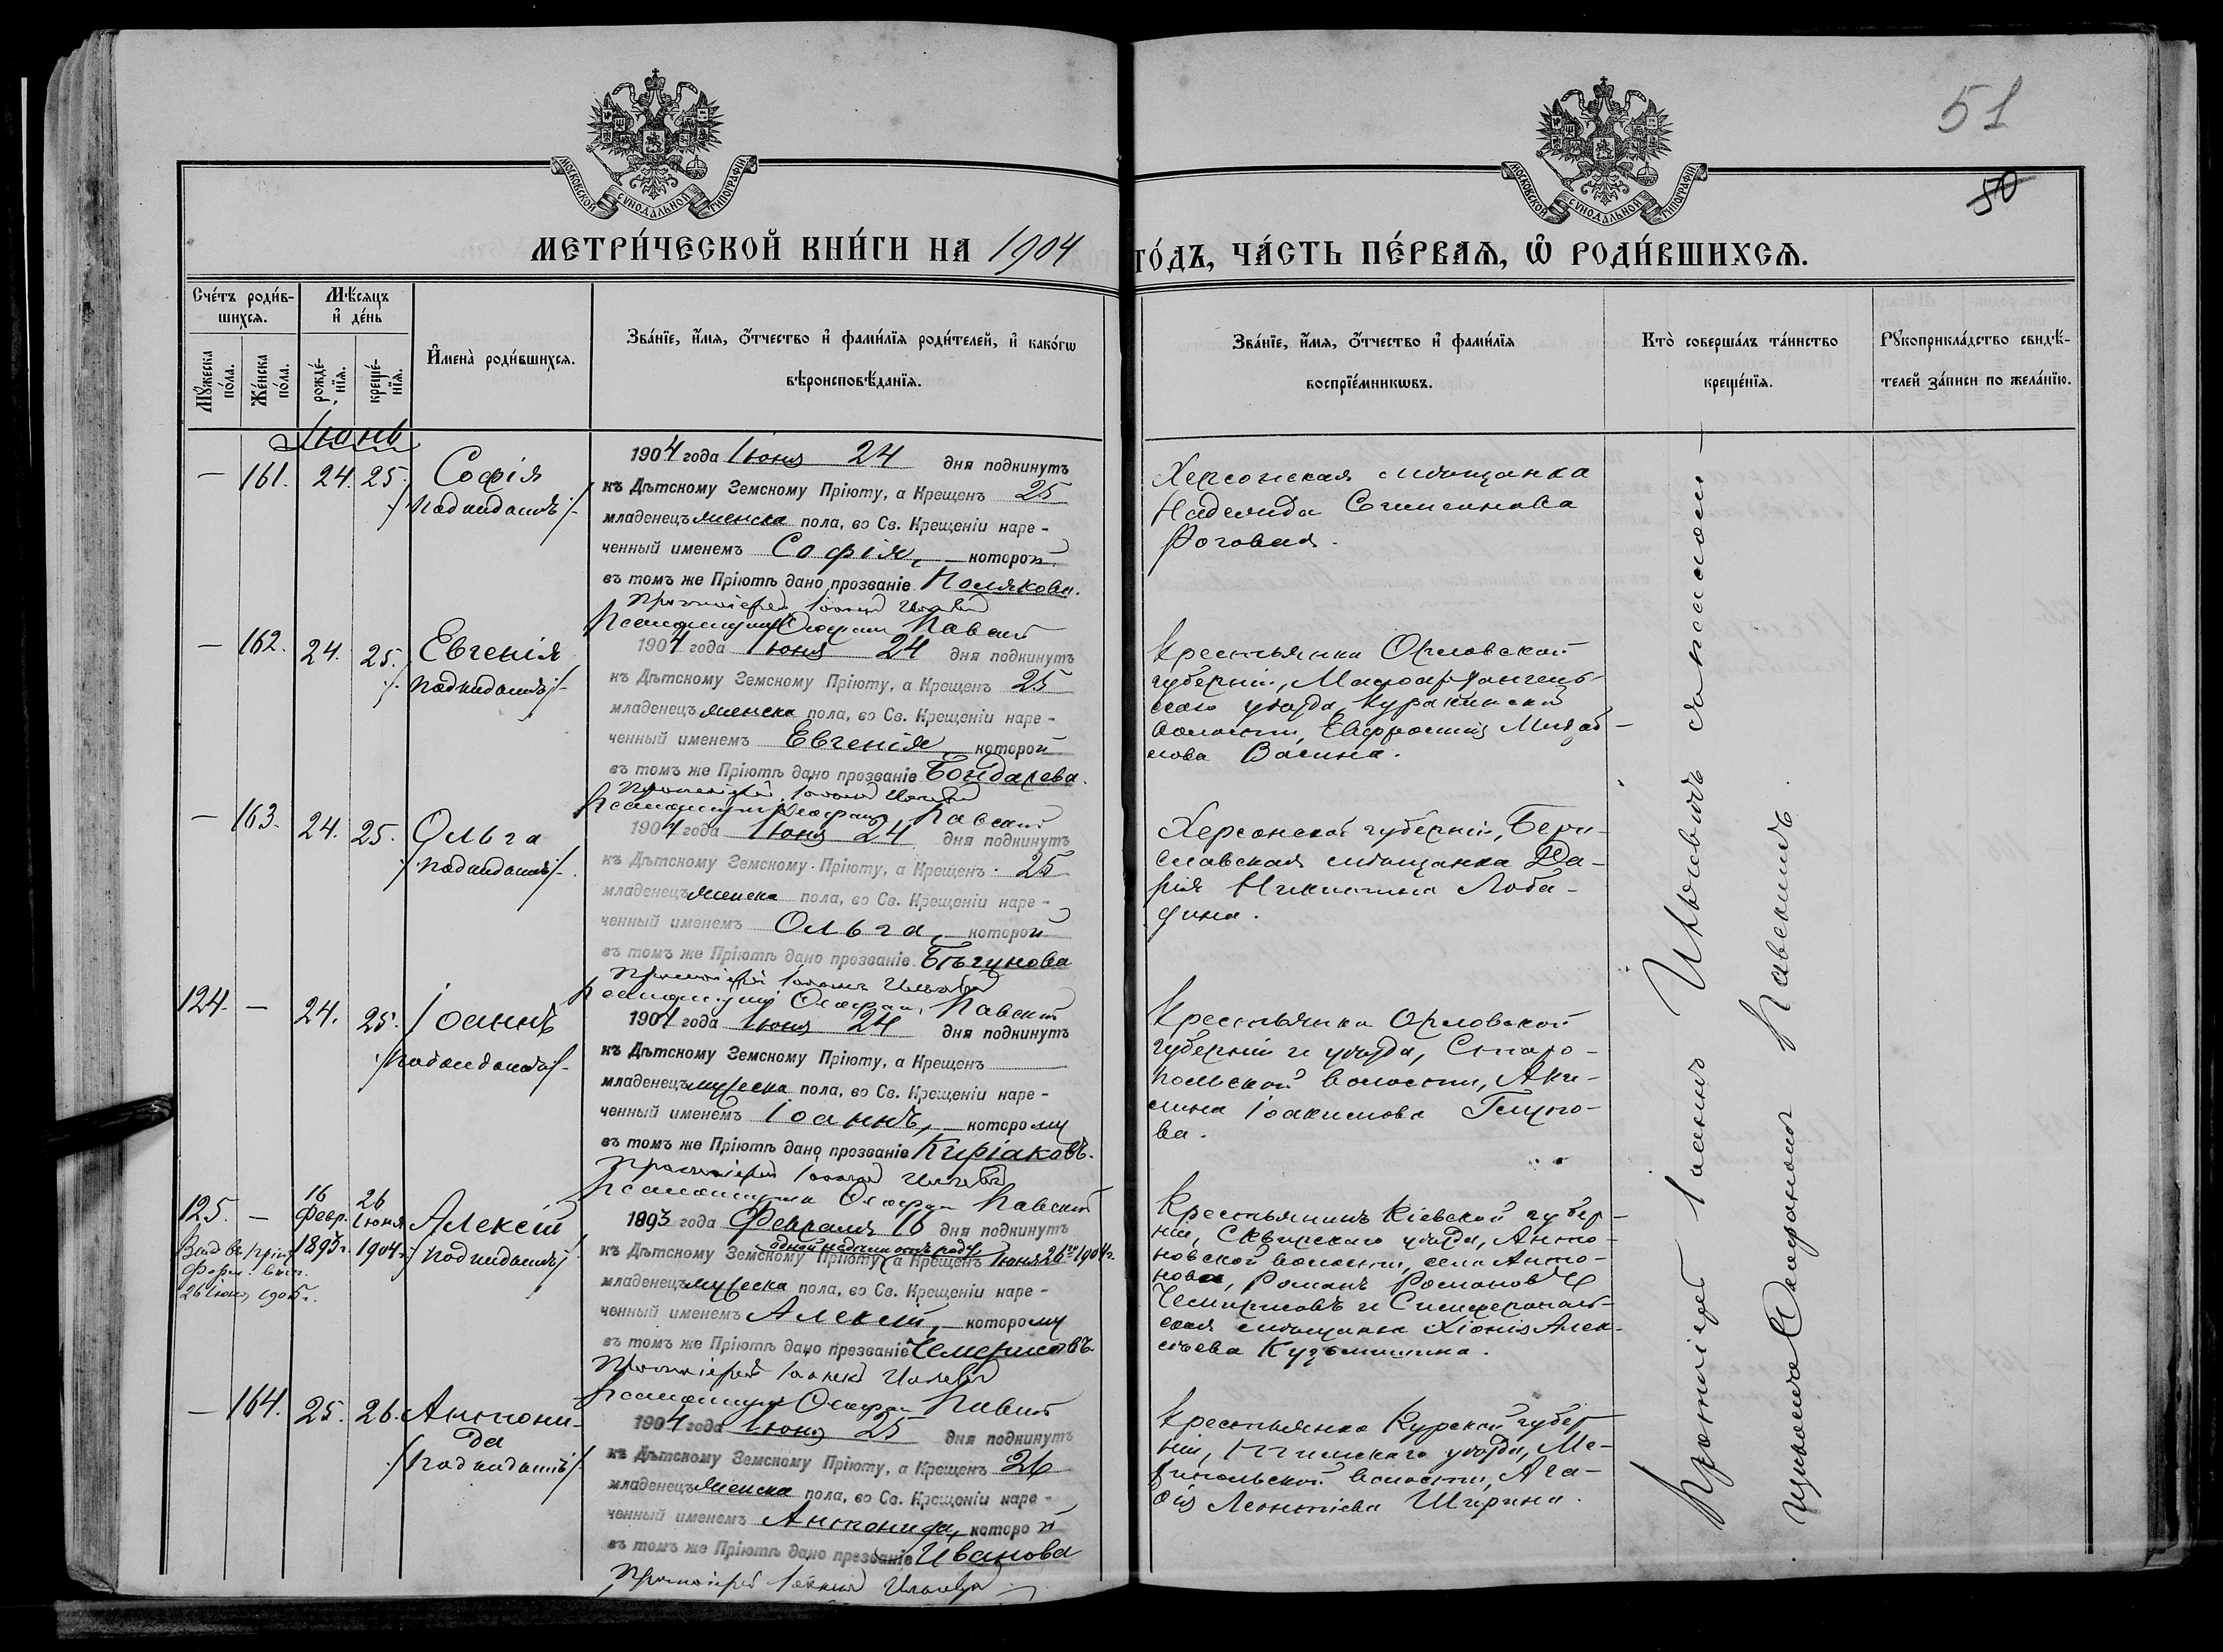 МОСКОВСКОЙ СУНОДАЛЬНОЙ ТИПОГРАФІИ
МОСКОВСКОЙ СУНОДАЛЬНОЙ ТИПОГРАФІИ
51
50
МЕТРИ́ЧЕСКОЙ КНИ́ГИ НА 1904
ГО́ДЪ, ЧА́СТЬ ПЕ́РВАѦ, Ѡ РОДИ́ВШИХСѦ.
Сче́тъ роди́в-
шихсѧ.
Мѣ́сѧцъ
и҆ де́нь
Мꙋ́жеска
по́ла.
Же́нска
по́ла.
рожде́-
нїѧ.
креще́-
нїѧ.
И҆мена̀ роди́вшихсѧ.
Зва́нїе, и҆́мѧ, ѻ҆́тчество и҆ фами́лїѧ роди́телей, и҆ како́гѡ
вѣроисповѣ́данїѧ.
Зва́нїе, и҆́мѧ, ѻ҆́тчество и҆ фами́лїѧ
воспрїе́мникѡвъ.
Кто̀ соверша́лъ та́инство
креще́нїѧ.
Рꙋкоприкла́дство свидѣ́-
телей за́писи по жела́нїю.
Іюнь
— 161. 24. 25. Софія
/Подкидышъ/
1904 года Іюня 24 дня подкинутъ
къ Дѣтскому Земскому Пріюту, а Крещенъ 25
младенецъ женска пола, во Св. Крещеніи наре-
ченный именемъ Софія, которой
въ томъ же Пріютѣ дано прозваніе Полякова.
Протоіерей Іоаннъ
Псаломщикъ Павскій
Херсонская мѣщанка
Надежда
Роговая.
— 162. 24. 25. Евгенія
/Подкидышъ/
1904 года Іюня 24 дня подкинутъ
къ Дѣтскому Земскому Пріюту, а Крещенъ 25
младенецъ женска пола, во Св. Крещеніи наре-
ченный именемъ Евгенія, которой
въ томъ же Пріютѣ дано прозваніе Бондарева.
Протоіерей Іоаннъ
Псаломщикъ Павскій
Крестьянка Орловской
губерніи, Малоархангель-
скаго уѣзда, Куракинской
волости, Евфросинія
Васина.
— 163. 24. 25. Ольга
/Подкидышъ/
1904 года Іюня 24 дня подкинутъ
къ Дѣтскому Земскому Пріюту, а Крещенъ 25
младенецъ женска пола, во Св. Крещеніи наре-
ченный именемъ Ольга, которой
въ томъ же Пріютѣ дано прозваніе Бѣгунова
Протоіерей Іоаннъ
Псаломщикъ Павскій
Херсонской губерніи, Бери-
славская мѣщанка Да-
рія Никитина
124. — 24. 25. Іоаннъ
/Подкидышъ/
1904 года Іюня 24 дня подкинутъ
къ Дѣтскому Земскому Пріюту, а Крещенъ
младенецъ мужеска пола, во Св. Крещеніи наре-
ченный именемъ Іоаннъ, которому
въ томъ же Пріютѣ дано прозваніе Киріаковъ.
Протоіерей Іоаннъ
Псаломщикъ Павскій
Крестьянка Орловской
губерніи и уѣзда,
волости, Аки-
лина Іоакимова
125. — 16 Февр. 1893 г. 26 Іюня 1904 г. Алексій
/Подкидышъ/
26 Іюня 1905 г.
1893 года Февраля 16 дня подкинутъ
къ Дѣтскому Земскому Пріюту, а Крещенъ Іюня 26го 1904 г.
младенецъ мужеска пола, во Св. Крещеніи наре-
ченный именемъ Алексій, которому
въ томъ же Пріютѣ дано прозваніе Чемерисовъ.
Протоіерей Іоаннъ
Псаломщикъ Павскій
Крестьянинъ Кіевской губер-
ніи, Сквирскаго уѣзда, Анто-
новской волости, села Анто-
нова, Романъ Романовъ
Чемерисовъ и Симферополь-
ская мѣщанка Хіонія Алек-
сѣева Кузьмина.
— 164. 25. 26. Антони-
да
/Подкидышъ/
1904 года Іюня 25 дня подкинутъ
къ Дѣтскому Земскому Пріюту, а Крещенъ 26
младенецъ женска пола, во Св. Крещеніи наре-
ченный именемъ Антонида, которой
въ томъ же Пріютѣ дано прозваніе Иванова
Протоіерей Іоаннъ
Крестьянка Курской губер-
ніи, уѣзда,
волости, Ага-
фія Леонтіева Ширина.
Протоіерей Іоаннъ съ псаломщ.
Павскимъ.